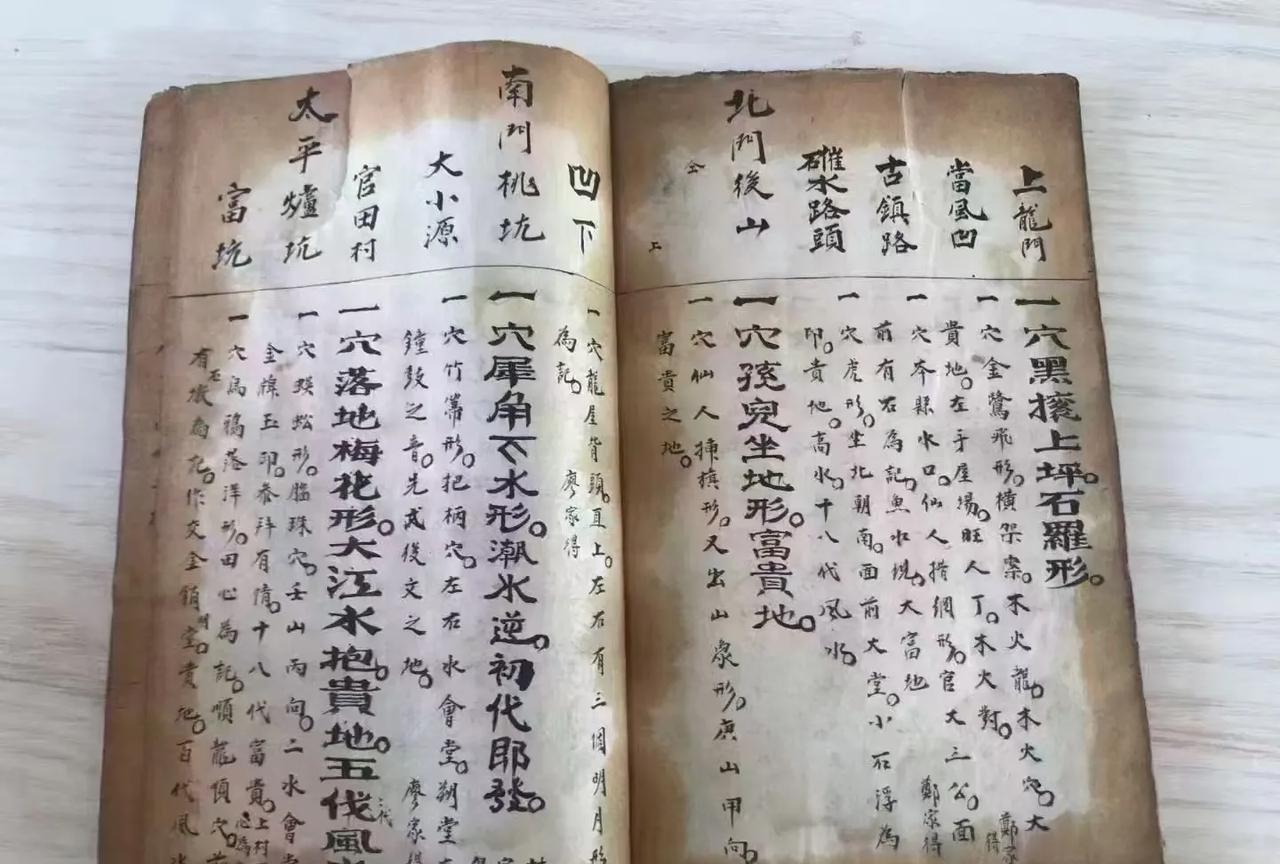 上龍門
一穴黑摌上坪石羅形。
當風凹
一穴金鵞飛形。橫架案。木火龍。木火穴。大
貴地。左手屋場。旺人丁。木火對。
鄭家得
古鎮路
一穴本縣水口。仙人撍網形。官大三公。面
前有石為記。魚水現。大富地
鄭家得
磪水路頭
一穴虎形。坐北朝南。面前大堂。小石浮為
印。貴地。高水。十八代風水。
北門後山
一穴孩兒坐地形。富貴地。
仝
一穴仙人插旗形。又出山象形。庚山甲向。
富貴之地。
上
凹下
一穴龍屋背頭。直上。左右有三個明月形
為記。
廖家得
南門桃坑
一穴犀角下水形。潮水逆。初代即發。
大小源
一穴竹篙形。把柄穴。左右水會堂。朔堂
鐘鼓之音。先武後文之地。
廖家得
官田村
一穴落地梅花形。大江水抱。貴地。五代風
三代
太平爐坑
一穴蜈蚣形。腦珠穴。壬山丙向。二水會
金牌玉印。參拜有情。十八代富貴。
上村
富坑
一穴為福落洋形。田心為記。順龍頂穴。
有石壙為記。作交金銷堂。貴地。百代風